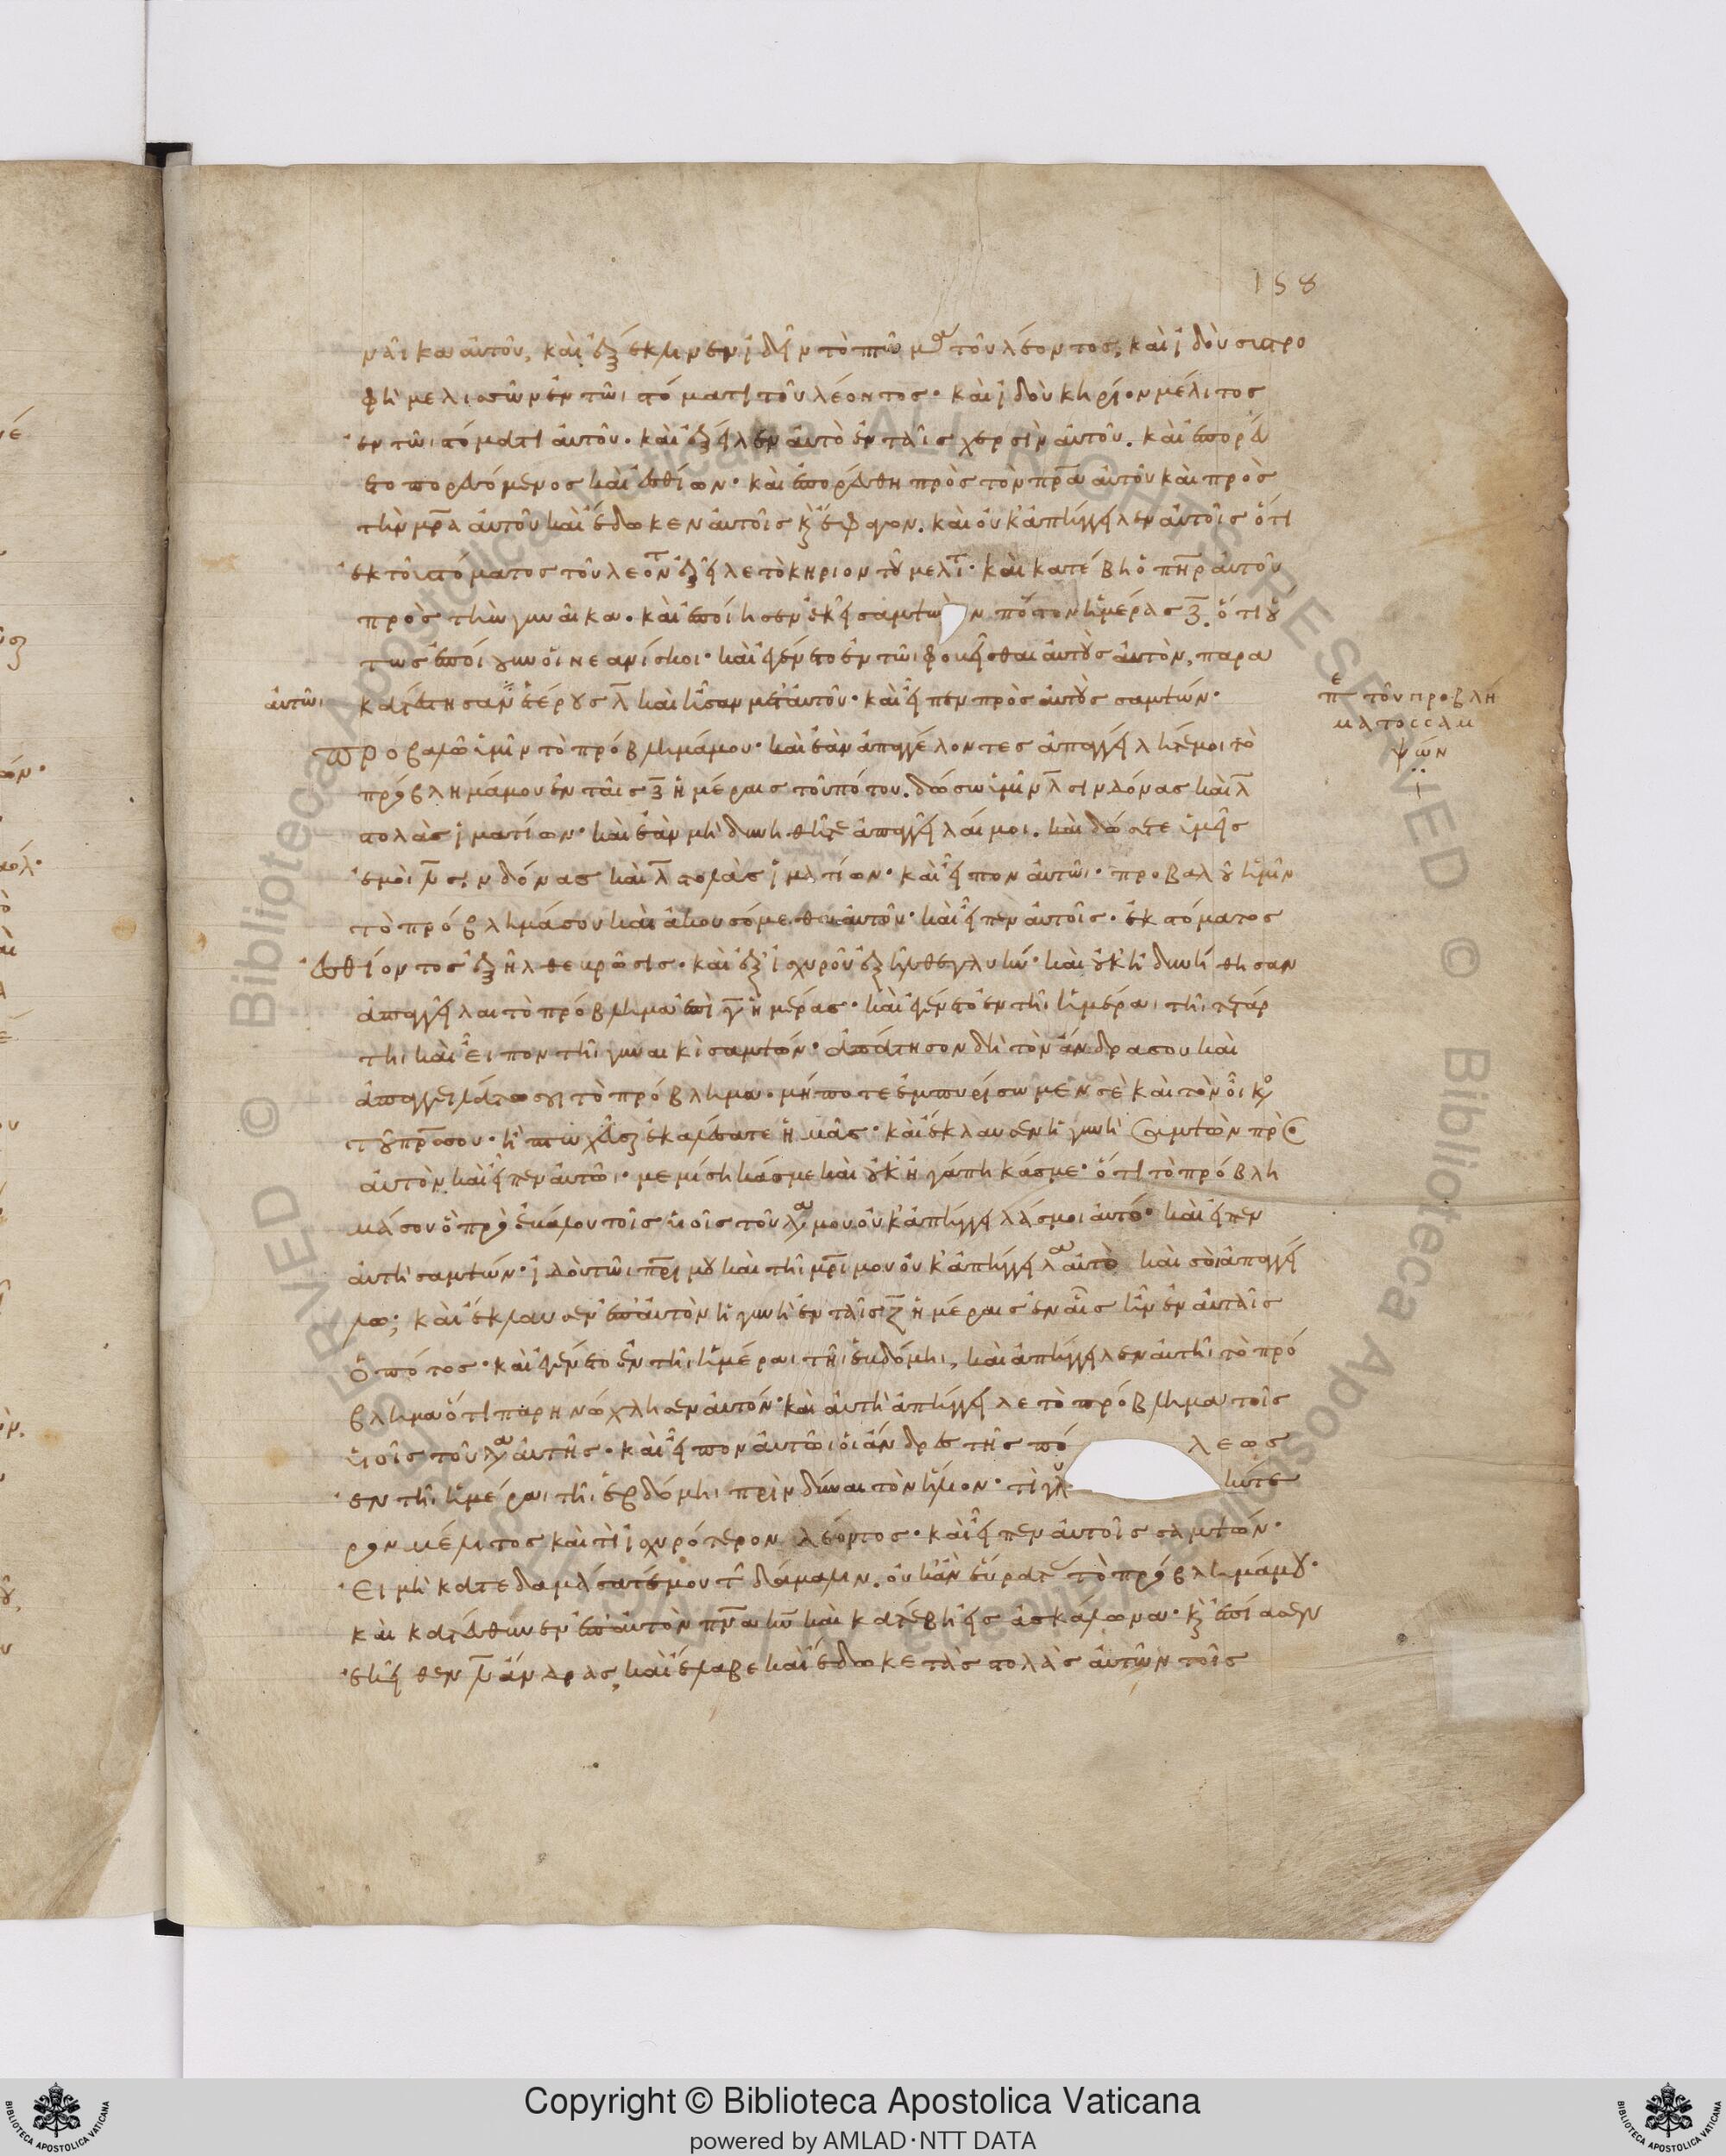 158
ναῖκα αὐτοῦ, καὶ ἐξέκλινεν ἰδεῖν τὸ πτῶμα τοῦ λέοντος, καὶ ἰδοὺ συστρο
φὴ μελισσῶν ἐν τῶι στόματι τοῦ λέοντος· καὶ ἰδοὺ κηρίον μέλιτος
ἐν τῶι στόματι αὐτοῦ. καὶ ἐξεῖλεν αὐτὸ ἐν ταῖς χερσὶν αὐτοῦ. καὶ ἐπορεύ
ετο πορευόμενος καὶ ἐσθίων· καὶ ἐπορεύθη πρὸς τὸν πρ̅α αὐτοῦ καὶ πρὸς
τὴν μρ̅α αὐτοῦ καὶ ἔδωκεν αὐτοῖς κ̀ ἔφαγον. καὶ οὐκ ἀπήγγειλεν αὐτοῖς ὅτι
ἐκ τοῦ στόματος τοῦ λέοντ ἐξεῖλε τὸ κηρίον τοῦ μέλιτ· καὶ κατέβη ὁ πη̅ρ αὐτοῦ
πρὸς τὴν γυναῖκα. καὶ ἐποίησεν ἐκεῖ σαμψὼν πότον ἡμέρας ζ̅. ὅτι οὕ
τως ἐποίουν οἱ νεανίσκοι· καὶ ἐγένετο ἐν τῶι φοβεῖσθαι αὐτοὺς αὐτὸν, παρα
αὐτῶι κατέστησαν ἑτέρους λ̅ καὶ ἦσαν μετ' αὐτοῦ· καὶ εἶπεν πρὸς αὐτοὺς σαμψών·
π̅ε τοῦ προβλή
ματος σαμ
ψών
Προβαλῶ ὑμῖν τὸ πρόβλημά μου· καὶ ἐὰν ἀπαγγέλοντες ἀπαγγείλητέ μοι τὸ
πρόβλημά μου ἐν ταῖς ζ̅ ἡμέραις τοῦ πότου. δώσω ὑμῖν λ̅ σινδόνας καὶ λ̅
στολὰς ἱματίων· καὶ ἐὰν μὴ δυνηθῆτε ἀπαγγεῖλαί μοι. καὶ δώσετε ὑμεῖς
ἐμοὶ λ̅ σινδόνας καὶ λ̅ στολὰς ἱματίων· καὶ εἶπον αὐτῶι· προβαλοῦ ἡμῖν
τὸ πρόβλημά σου καὶ ἀκουσόμεθα αὐτοῦ· καὶ εἶπεν αὐτοῖς· ἐκ στόματος
ἐσθίοντος ἐξῆλθε βρῶσις· καὶ ἐξ ἰσχυροῦ ἐξῆλθε γλυκύ· καὶ οὐκ ἠδυνήθησαν
ἀπαγγεῖλαι τὸ πρόβλημα ἐπὶ γ̅ ἡμέρας· καὶ ἐγένετο ἐν τῆι ἡμέραι τῆι τετάρ
τηι καὶ εἶπον τῆι γυναικὶ σαμψών· ἀπάτησον δὴ τὸν ἄνδρα σου καὶ
ἀπαγγειλάτω σοι τὸ πρόβλημα· μήποτε ἐμπυρίσωμεν σὲ καὶ τὸν οἶκον
τοῦ πρ̅ς σου· ἢ πτωχεῦσαι ἐκαλέσατε ἡμᾶς· καὶ ἔκλαυσεν ἡ γυνὴ σαμψὼν πρὸς
αὐτὸν καὶ εἶπεν αὐτῶι· μεμίσηκάς με καὶ οὐκ ἠγάπηκάς με· ὅτι τὸ πρόβλη
μά σου ὃ προεβάλου τοῖς υἱοῖς τοῦ λαοῦ μου οὐκ ἀπήγγειλάς μοι αὐτό· καὶ εἶπεν
αὐτῆ σαμψών· ἰδοὺ τῶι πρ̅ι μου καὶ τῆι μρ̅ι μου οὐκ ἀπήγγειλα αὐτὸ καὶ σοὶ ἀπαγγε
λῶ; καὶ ἔκλαυσεν ἐπ' αὐτὸν ἡ γυνὴ ἐν ταῖς ζ̅ ἡμέραις ἐν αἷς ἦν ἐν αὐταῖς
ὁ πότος· καὶ ἐγένετο ἐν τῆι ἡμέραι τῆι ἑβδόμηι, καὶ ἀπήγγειλεν αὐτῆι τὸ πρό
βλημα ὅτι παρηνώχλησεν αὐτόν· καὶ αὐτὴ ἀπήγγειλε τὸ πρόβλημα τοῖς
υἱοῖς τοῦ λαοῦ αὐτῆς· καὶ εἶπον αὐτῶι οἱ ἄνδρες τῆς πό λεως
ἐν τῆι ἡμέραι τῆι ἑβδόμηι πρὶν δῦναι τὸν ἥλιον· τί γλυ κύτε
ρον μέλιτος καὶ τί ἰσχυρότερον λέοντος· καὶ εἶπεν αὐτοῖς σαμψών·
Εἰ μὴ κατεδαμάσατέ μου τ̅ δάμαλιν. οὐκ ἂν εὕρατε τὸ πρόβλημά μου·
καὶ κατεύθυνεν ἐπ' αὐτὸν πν̅α κυ̅ καὶ κατέβη εἰς ἀσκάλωνα· κ̀ ἔπαισεν
ἐκεῖθεν λ̅ ἄνδρας, καὶ ἔλαβε καὶ ἔδωκε τὰς στολὰς αὐτῶν τοῖς
Copyright © Biblioteca Apostolica Vaticana
powered by AMLAD·NTT DATA